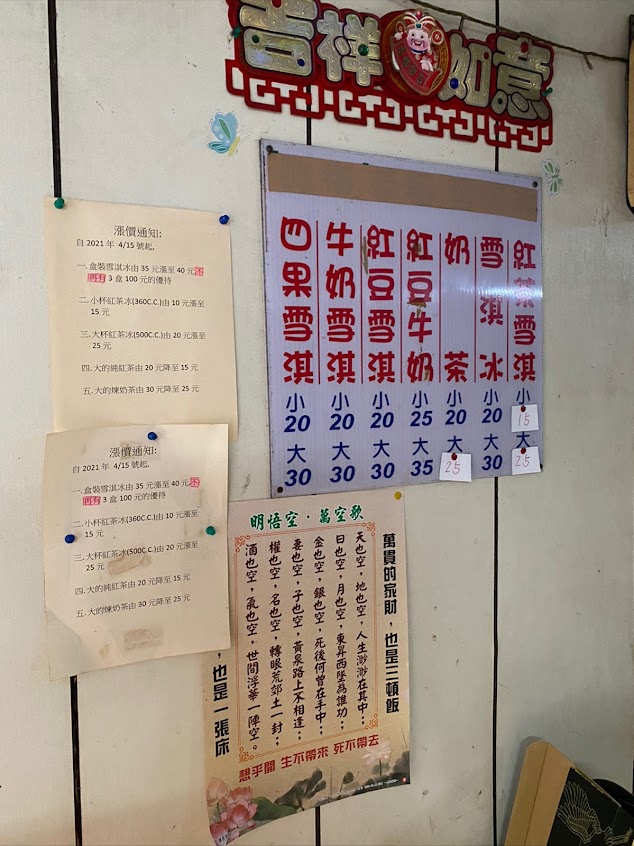 吉祥如意
紅茶雪淇 小 15 大 25
雪淇冰 小 20 大 30
奶茶 小 20 大 25
紅豆牛奶 小 25 大 35
紅豆雪淇 小 20 大 30
牛奶雪淇 小 20 大 30
四果雪淇 小 20 大 30
漲價通知:
自 2021 年 4/15 號起,
一. 盒裝雪淇冰由 35 元漲至 40 元
3 盒 100 元的優待
二. 小杯紅茶冰(360C.C.)由 10 元漲至
15 元
三. 大杯紅茶冰(500C.C.)由 20 元漲至
25 元
四. 大的純紅茶由 20 元降至 15 元
五. 大的煉奶茶由 30 元降至 25 元
漲價通知:
自 2021 年 4/15 號起,
一. 盒裝雪淇冰由 35 元漲至 40 元
3 盒 100 元的優待
二. 小杯紅茶冰(360C.C.)由 10 元漲至
15 元
三. 大杯紅茶冰(500C.C.)由 20 元漲至
25 元
四. 大的純紅茶由 20 元降至 15 元
五. 大的煉奶茶由 30 元降至 25 元
明悟空·萬空歌
萬貫的家財,也是三頓飯
天也空,地也空,人生渺渺在其中;
日也空,月也空,東昇西墜為誰功;
金也空,銀也空,死後何曾在手中;
妻也空,子也空,黃泉路上不相逢;
權也空,名也空,轉眼荒郊土一封;
酒也空,氣也空,世間浮華一陣空。
,也是一張床
想乎開 生不帶來 死不帶去